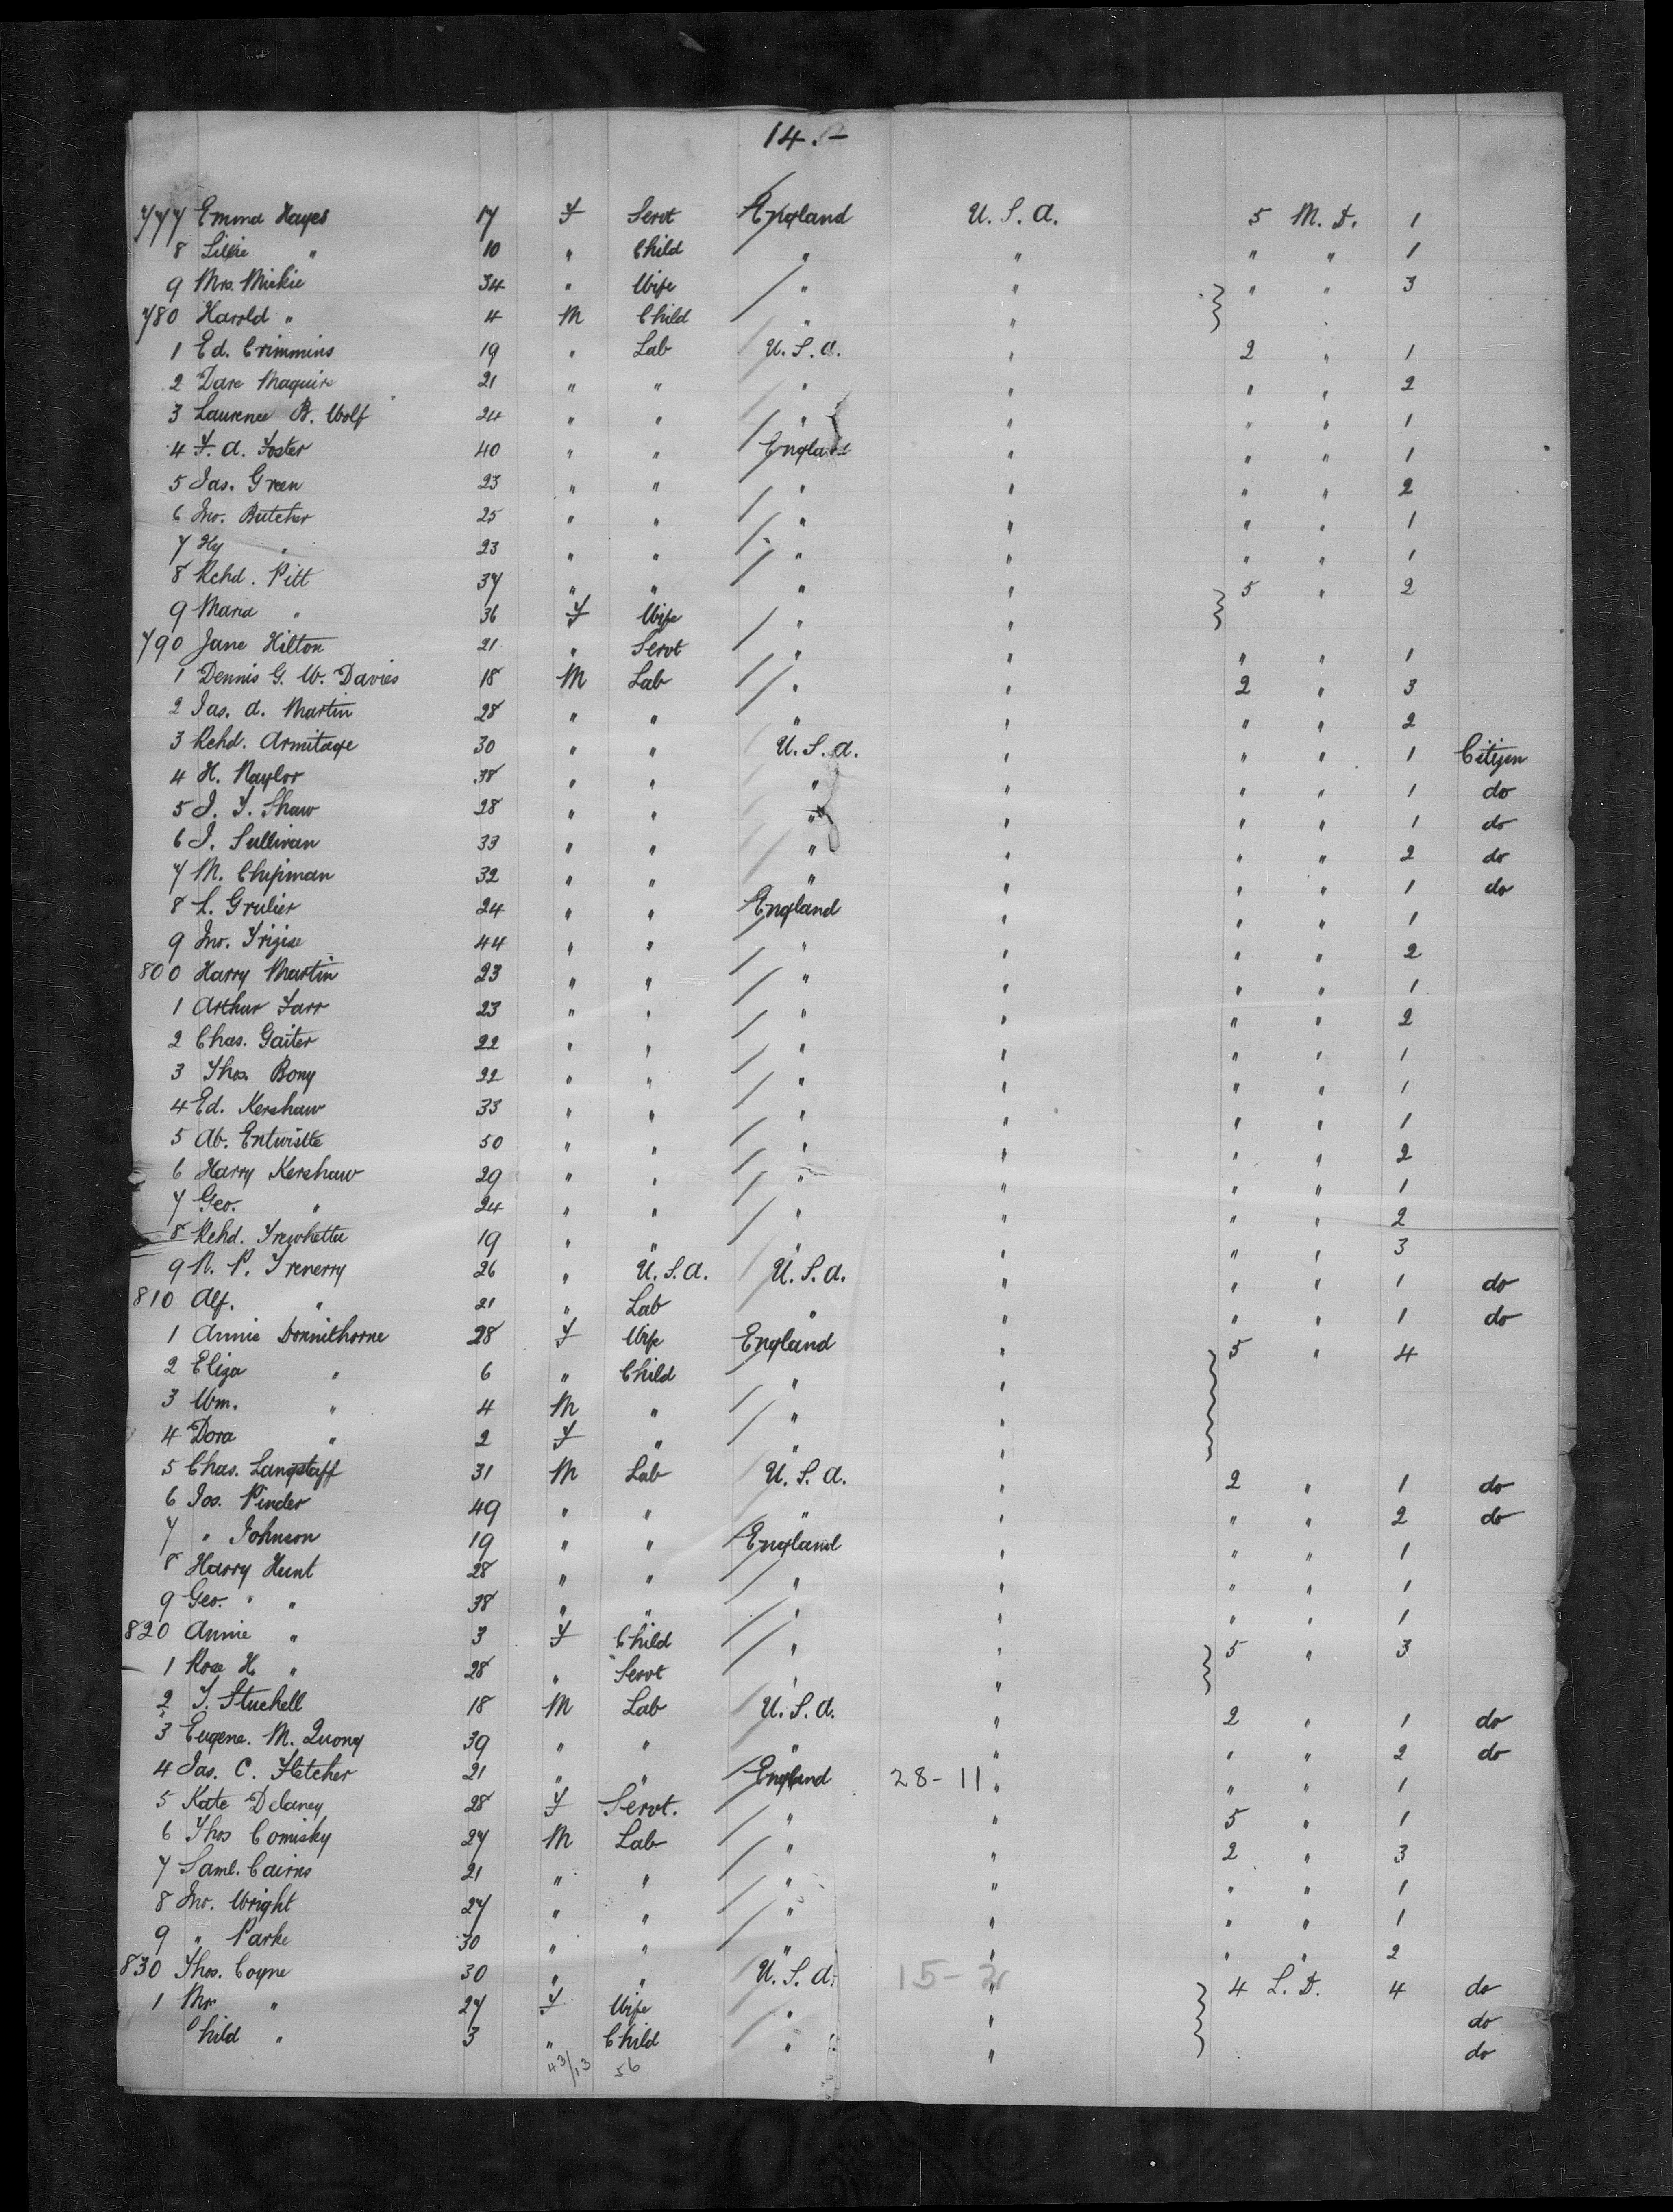 14.-
777 Emma Hayes 17 F Servt England U.S.A. 5 M.D. 1
8 Lillie " 10 " Child " " " " 1
9 Mrs. Mickie 34 " Wife " " " " 3
780 Harold " 4 M Child " "
1 Ed. Crimmins 19 " Lab U.S.A. " 2 " 1
2 Dave Maguire 21 " " " " " " 2
3 Laurence B. Wolf 24 " " " " " " 1
4 F. A. Foster 40 " " England " " " 1
5 Jas. Green 23 " " " " " " 2
6 Jno. Butcher 25 " " " " " " 1
7 Hy " 23 " " " " " " 1
8 Rchd. Pitt 37 " " " " 5 " 2
9 Maria " 36 F Wife " "
790 Jane Hilton 21 " Servt " " " " 1
1 Dennis G. W. Davies 18 M Lab " " 2 " 3
2 Jas. A. Martin 28 " " " " " " 2
3 Rchd. Armitage 30 " " U.S.A. " " " 1 Citizen
4 H. Naylor 38 " " " " " " 1 do
5 J. T. Shaw 28 " " " " " " 1 do
6 J. Sullivan 33 " " " " " " 2 do
7 M. Chipman 32 " " " " " " 1 do
8 L. Grulier 24 " " England " " " 1
9 Jno. 44 " " " " " " 2
800 Harry Martin 23 " " " " " " 1
1 Arthur Farr 23 " " " " " " 2
2 Chas. Gaiter 22 " " " " " " 1
3 Thos. Bony 22 " " " " " " 1
4 Ed. Kershaw 33 " " " " " " 1
5 Ab. Entwistle 50 " " " " " " 2
6 Harry Kershaw 29 " " " " " " 1
7 Geo. " 24 " " " " " " 2
8 Rchd. Trewhettee 19 " " " " " " 3
9 N. P. Trenerry 26 " U.S.A. U.S.A. " " " 1 do
810 Alf. " 21 " Lab " " " " 1 do
1 Annie Donnithorne 28 F Wife England " 5 " 4
2 Eliza " 6 " Child " "
3 Wm. " 4 M " " "
4 Dora " 2 F " " "
5 Chas. Langstaff 31 M Lab U.S.A. " 2 " 1 do
6 Jos. Pinder 49 " " " " " " 2 do
7 " Johnson 19 " " England " " " 1
8 Harry Hunt 28 " " " " " " 1
9 Geo. " 38 " " " " " " 1
820 Annie " 3 F Child " " 5 " 3
1 Rose H. " 28 " Servt " "
2 T. Stuchell 18 M Lab U.S.A. " 2 " 1 do
3 Eugene. M. Quong 39 " " " " " " 2 do
4 Jas. C. Fletcher 21 " " England 28-11 " " " 1
5 Kate Delaney 28 F Servt. " " 5 " 1
6 Thos Comisky 27 M Lab " " 2 " 3
7 Saml. Cairns 21 " " " " " " 1
8 Jno. Wright 27 " " " " " " 1
9 " Parke 30 " " " " " " 2
830 Thos. Coyne 30 " " U.S.A. 15-2 " 4 L.D. 4 do
1 Mrs " 27 F Wife " " do
Child " 3 " Child " " do
43/13 56